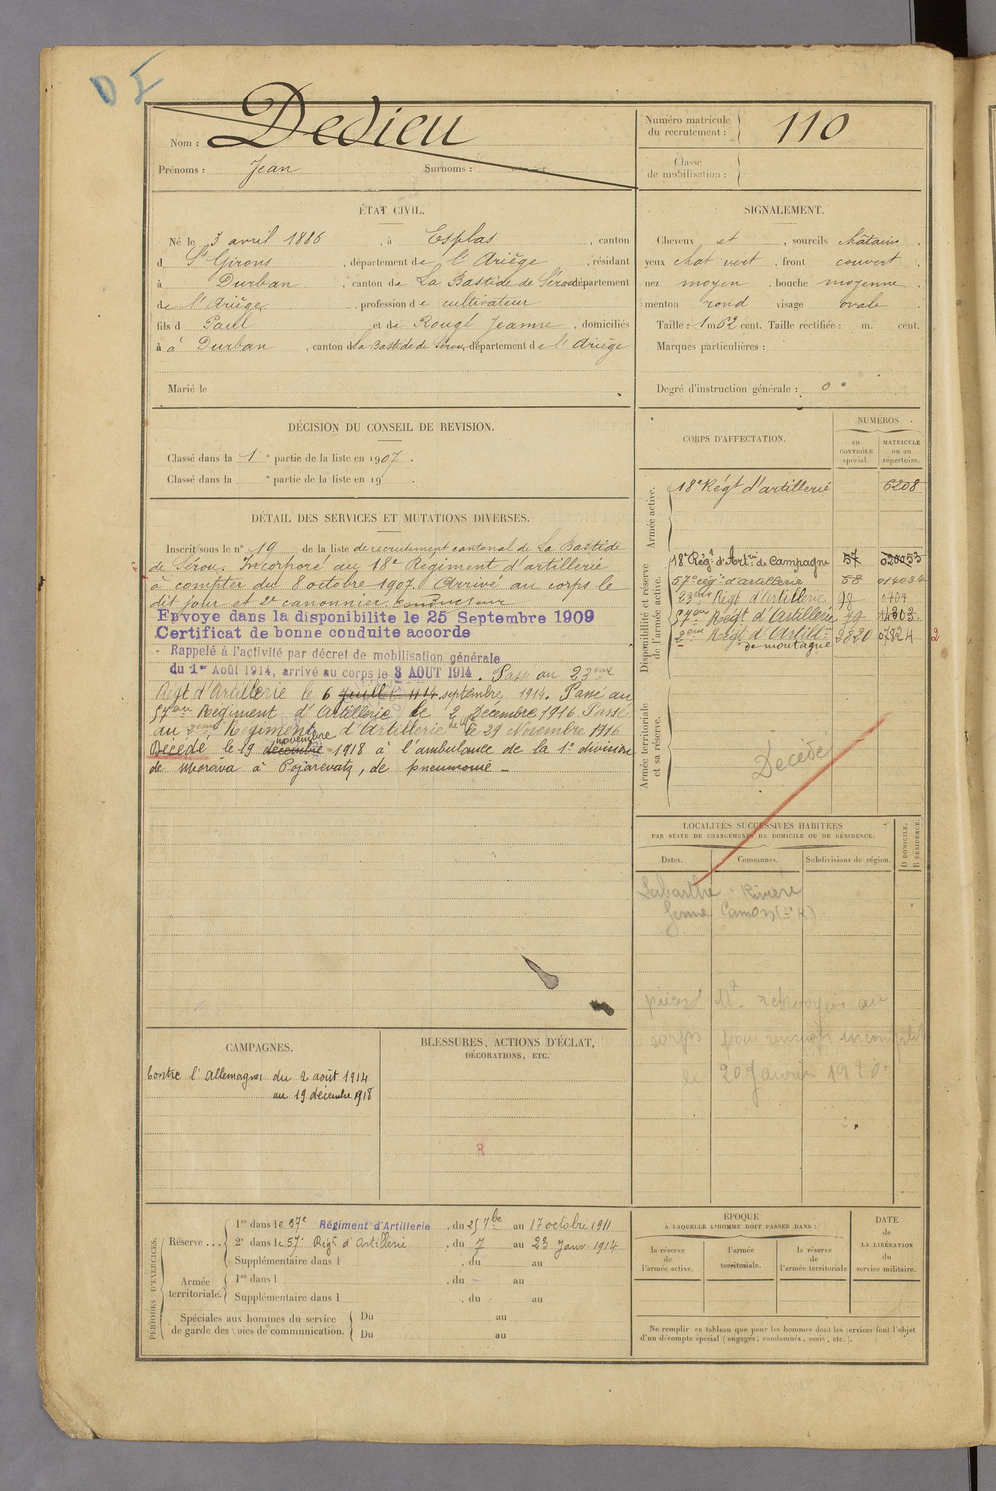 D I
Nom : Dedieu
Prénoms : Jean Surnoms :
Numéro matricule du recrutement : 110
Classe de mobilisation :
ÉTAT CIVIL.
Né le 3 avril 1886, à Esplas, canton
d St Girons, département de l'Ariège, résidant
à Durban, canton de La Bastide de Sérou département
de l'Ariège, profession de cultivateur
fils d Paul et de Rougé Jeanne, domiciliés
à à Durban, canton de La Bastide de Sérou, département de l'Ariège
Marié le
SIGNALEMENT.
Cheveux et , sourcils châtains
yeux chat vert, front couvert
nez moyen, bouche moyenne
menton rond visage ovale
Taille : 1 m 62 cent. Taille rectifiée : m. cent.
Marques particulières :
Degré d'instruction générale : 0
DÉCISION DU CONSEIL DE REVISION.
Classé dans la 1e partie de la liste en 1907.
Classé dans la e partie de la liste en 19 .
DÉTAIL DES SERVICES ET MUTATIONS DIVERSES.
Inscrit sous le n° 19 de la liste de recrutement cantonal de La Bastide
de Sérou. Incorporé au 18e Régiment d'artillerie
à compter du 8 octobre 1907. Arrivé au corps le
dit jour et 2e canonnier conducteur
Envoyé dans la disponibilite le 25 Septembre 1909
Certificat de bonne conduite accorde
Rappelé à l'activité par décret de mobilisation générale
du 1er Août 1914, arrivé au corps le 3 AOUT 1914. Passé au 23eme
Régt d'Artillerie le 6 juillet 1914 septembre 1914. Passé au
57eme Régiment d'Artillerie le 2 Décembre 1916. Passé
au 2eme Régiment d'Artillerie de Mgne le 29 Novembre 1916
novembre
Décédé le 19 décembre 1918 à l'ambulance de la 1e division
de Morava à Pojarevatz, de pneumonie
CORPS D'AFFECTATION.
NUMÉROS
au CONTRÔLE spécial.
MATRICULE ou au répertoire.
Armée active.
18e Régt d'artillerie 6208
Disponibilité et réserve de l'armée active.
18e Régt d'Artie de Campagne 57 020053
57e rég. d'artillerie 58
23eme Régt d'Artillerie
57eme Régt d'Artillerie 79
2eme Régt d'Artillie 2820 07824 2
de montagne
Armée territoriale et sa réserve.
Décédé
LOCALITÉS SUCCESSIVES HABITÉES
PAR SUITE DE CHANGEMENTS DE DOMICILE OU DE RÉSIDENCE.
Dates. Communes. Subdivisions de région. D DOMICILE, R RÉSIDENCE.
Labarthe-Rivière
ferme Camon
pièces Mle renvoyées au
corps pour
le 20 Janvier 1920
CAMPAGNES.
Contre l'Allemagne du 2 août 1914
au 19 décembre 1918
BLESSURES, ACTIONS D'ÉCLAT,
DÉCORATIONS, ETC.
PÉRIODES D'EXERCICES.
Réserve ...
1re dans le 57e Régiment d'Artillerie, du 25 7bre au 17 octobre 1911
2e dans le 57e Régt d'Artillerie, du 7 au 23 Janv. 1914
Supplémentaire dans l , du au
Armée territoriale.
1re dans l , du au
Supplémentaire dans l , du au
Spéciales aux hommes du service
de garde des voies de communication.
Du au
Du au
ÉPOQUE
A LAQUELLE L'HOMME DOIT PASSER DANS :
la réserve de l'armée active.
l'armée territoriale.
la réserve de l'armée territoriale
DATE de LA LIBÉRATION du service militaire.
Ne remplir ce tableau que pour les hommes dont les services font l'objet
d'un décompte spécial (engagés, condamnés, omis, etc.).